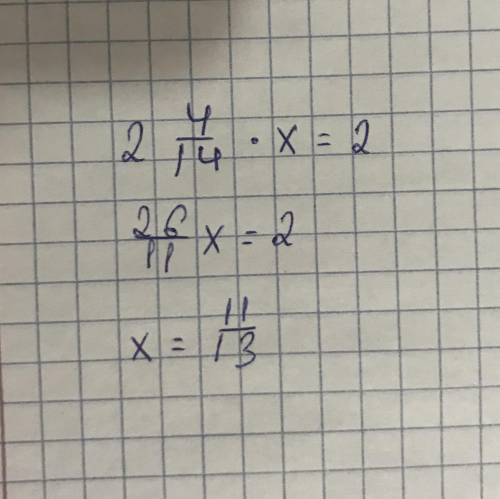 2 4/14 · x = 2
26/11 x = 2
x = 11/13